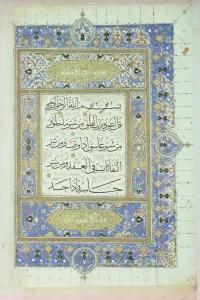 بسم الله الرحمن الرحيم
قل اعوذ برب الفلق من شر ما خلق و
من شر غاسق اذا وقب ومن شر
النفاثات في العقد ومن شر
حاسد اذا حسد